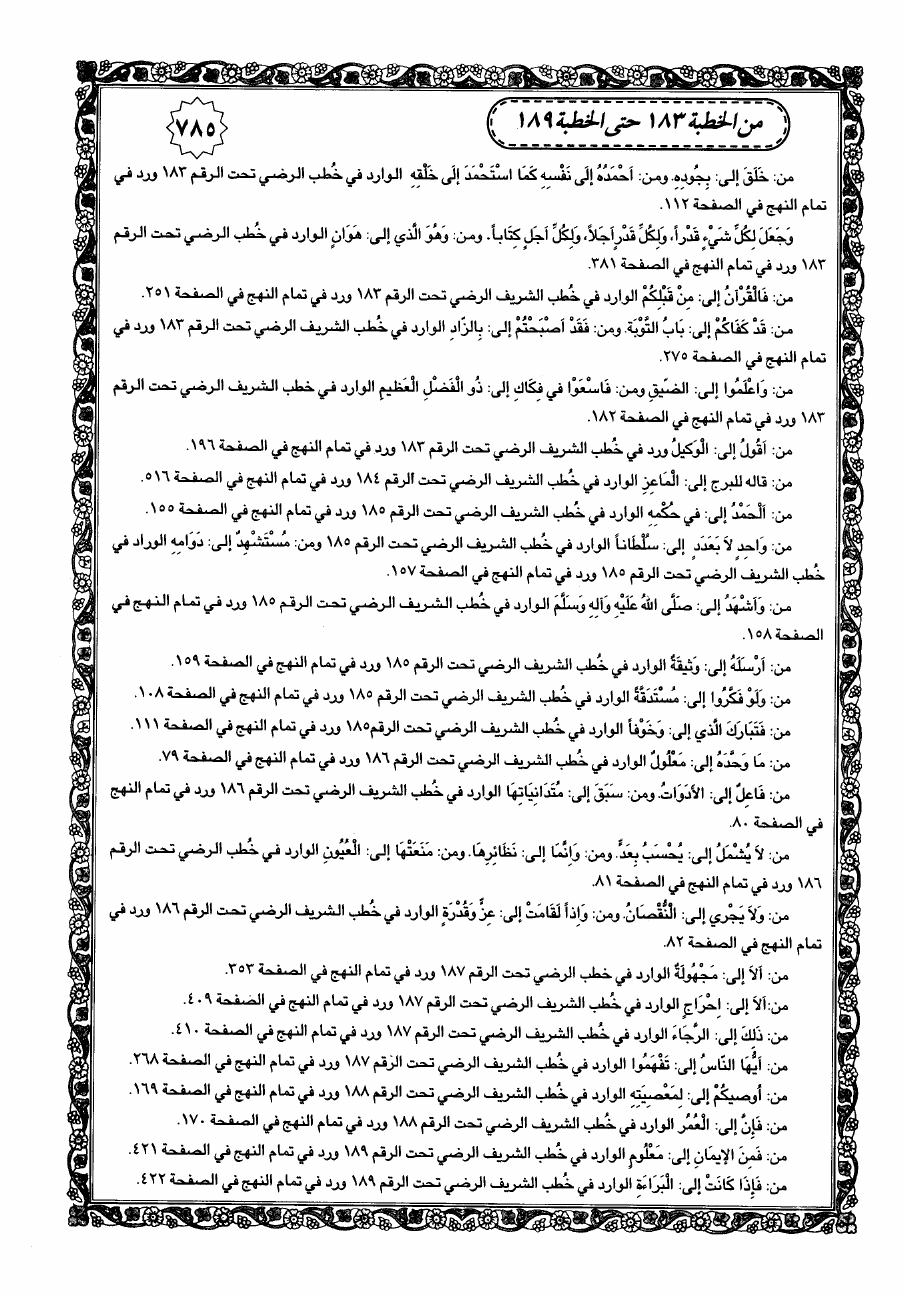 من الخطبة ١٨٣ حتى الخطبة ١٨٩
٧٨٥
من: خَلَقَ إلى: بِجُودِهِ. ومن: اَحْمَدُهُ إلَى نَفْسِهِ كَمَا اسْتَحْمَدَ إلَى خَلْقِهِ الوارد في خُطب الرضي تحت الرقم ١٨٣ ورد في
تمام النهج في الصفحة ١١٢.
وَجَعَلَ لِكُلِّ شَيْءٍ قَدْراً، وَلِكُلِّ قَدْرٍ اَجَلاً، وَلِكُلِّ اَجَلٍ كِتَاباً. ومن: وَهُوَ الَّذي إلى: هَوَانٍ الوارد في خُطب الرضي تحت الرقم
١٨٣ ورد في تمام النهج في الصفحة ٣٨١.
من: فَالْقُرْآنُ إلى: مِنْ قَبْلِكُمْ الوارد في خُطب الشريف الرضي تحت الرقم ١٨٣ ورد في تمام النهج في الصفحة ٢٥١.
من: قَدْ كَفَاكُمْ إلى: بَابُ التَّوْبَةِ. ومن: فَقَدْ اَصْبَحْتُمْ إلى: بِالزّادِ الوارد في خُطب الشريف الرضي تحت الرقم ١٨٣ ورد في
تمام النهج في الصفحة ٢٧٥.
من: وَاعْلَمُوا إلى: الضيّقِ ومن: فَاسْعَوْا في فِكَاكِ إلى: ذُو الْفَضْلِ الْعَظيمِ الوارد في خطب الشريف الرضي تحت الرقم
١٨٣ ورد في تمام النهج في الصفحة ١٨٢.
من: اَقُولُ إلى: الْوَكيلُ ورد في خُطب الشريف الرضي تحت الرقم ١٨٣ ورد في تمام النهج في الصفحة ١٩٦.
من: قاله للبرج إلى: الْمَاعِزِ الوارد في خُطب الشريف الرضي تحت الرقم ١٨٤ ورد في تمام النهج في الصفحة ٥١٦.
من: اَلْحَمْدُ إلى: في حُكْمِهِ الوارد في خُطب الشريف الرضي تحت الرقم ١٨٥ ورد في تمام النهج في الصفحة ١٥٥.
من: وَاحِدٍ لاَ بَعَدَدٍ إلى: سُلْطَاناً الوارد في خُطب الشريف الرضي تحت الرقم ١٨٥ ومن: مُسْتَشْهِدٌ إلى: دَوَامِهِ الوراد في
خُطب الشريف الرضي تحت الرقم ١٨٥ ورد في تمام النهج في الصفحة ١٥٧.
من: وَاَشْهَدُ إلى: صَلَّى اللهُ عَلَيْهِ وَآلِهِ وَسَلَّمَ الوارد في خُطب الشريف الرضي تحت الرقم ١٨٥ ورد في تمام النهج في
الصفحة ١٥٨.
من: اَرْسَلَهُ إلى: وَثيقَةً الوارد في خُطب الشريف الرضي تحت الرقم ١٨٥ ورد في تمام النهج في الصفحة ١٥٩.
من: وَلَوْ فَكَّرُوا إلى: مُسْتَدَقَّةً الوارد في خُطب الشريف الرضي تحت الرقم ١٨٥ ورد في تمام النهج في الصفحة ١٠٨.
من: فَتَبَارَكَ الَّذي إلى: وَخَوْفاً الوارد في خُطب الشريف الرضي تحت الرقم١٨٥ ورد في تمام النهج في الصفحة ١١١.
من: مَا وَحَّدَهُ إلى: مَعْلُولٌ الوارد في خُطب الشريف الرضي تحت الرقم ١٨٦ ورد في تمام النهج في الصفحة ٧٩.
من: فَاعِلٌ إلى: الأدَوَاتُ. ومن: سَبَقَ إلى: مُتَدَانِيَاتِهَا الوارد في خُطب الشريف الرضي تحت الرقم ١٨٦ ورد في تمام النهج
في الصفحة ٨٠.
من: لاَ يُشْمَلُ إلى: يُحْسَبُ بِعَدٍّ. ومن: وَإنَّمَا إلى: نَظَائِرِهَا. ومن: مَنَعَتْهَا إلى: الْعُيُونِ الوارد في خُطب الرضي تحت الرقم
١٨٦ ورد في تمام النهج في الصفحة ٨١.
من: وَلاَ يَجْري إلى: النُّقْصَانُ. ومن: وَإذاً لَقَامَتْ إلى: عِزٍّ وَقُدْرَةٍ الوارد في خُطب الشريف الرضي تحت الرقم ١٨٦ ورد في
تمام النهج في الصفحة ٨٢.
من: اَلاَ إلى: مَجْهُولَةٌ الوارد في خطب الرضي تحت الرقم ١٨٧ ورد في تمام النهج في الصفحة ٣٥٣.
من:اَلاَ إلى: إحْرَاجٍ الوارد في خُطب الشريف الرضي تحت الرقم ١٨٧ ورد في تمام النهج في الصفحة ٤٠٩.
من: ذَلِكَ إلى: الرَّجَاءَ الوارد في خُطب الشريف الرضي تحت الرقم ١٨٧ ورد في تمام النهج في الصفحة ٤١٠.
من: اَيُّهَا النّاسُ إلى: تَفْهَمُوا الوارد في خُطب الشريف الرضي تحت الرقم ١٨٧ ورد في تمام النهج في الصفحة ٢٦٨.
من: أوصيكُمْ إلى: لِمَعْصِيَتِهِ الوارد في خُطب الشريف الرضي تحت الرقم ١٨٨ ورد في تمام النهج في الصفحة ١٦٩.
من: فَإنَّ إلى: الْعُمُرِ الوارد في خُطب الشريف الرضي تحت الرقم ١٨٨ ورد في تمام النهج في الصفحة ١٧٠.
من: فَمِنَ الإيمَانِ إلى: مَعْلُومٍ الوارد في خُطب الشريف الرضي تحت الرقم ١٨٩ ورد في تمام النهج في الصفحة ٤٢١.
من: فَإذَا كَانَتْ إلى: الْبَرَاءَةِ الوارد في خُطب الشريف الرضي تحت الرقم ١٨٩ ورد في تمام النهج في الصفحة ٤٢٢.